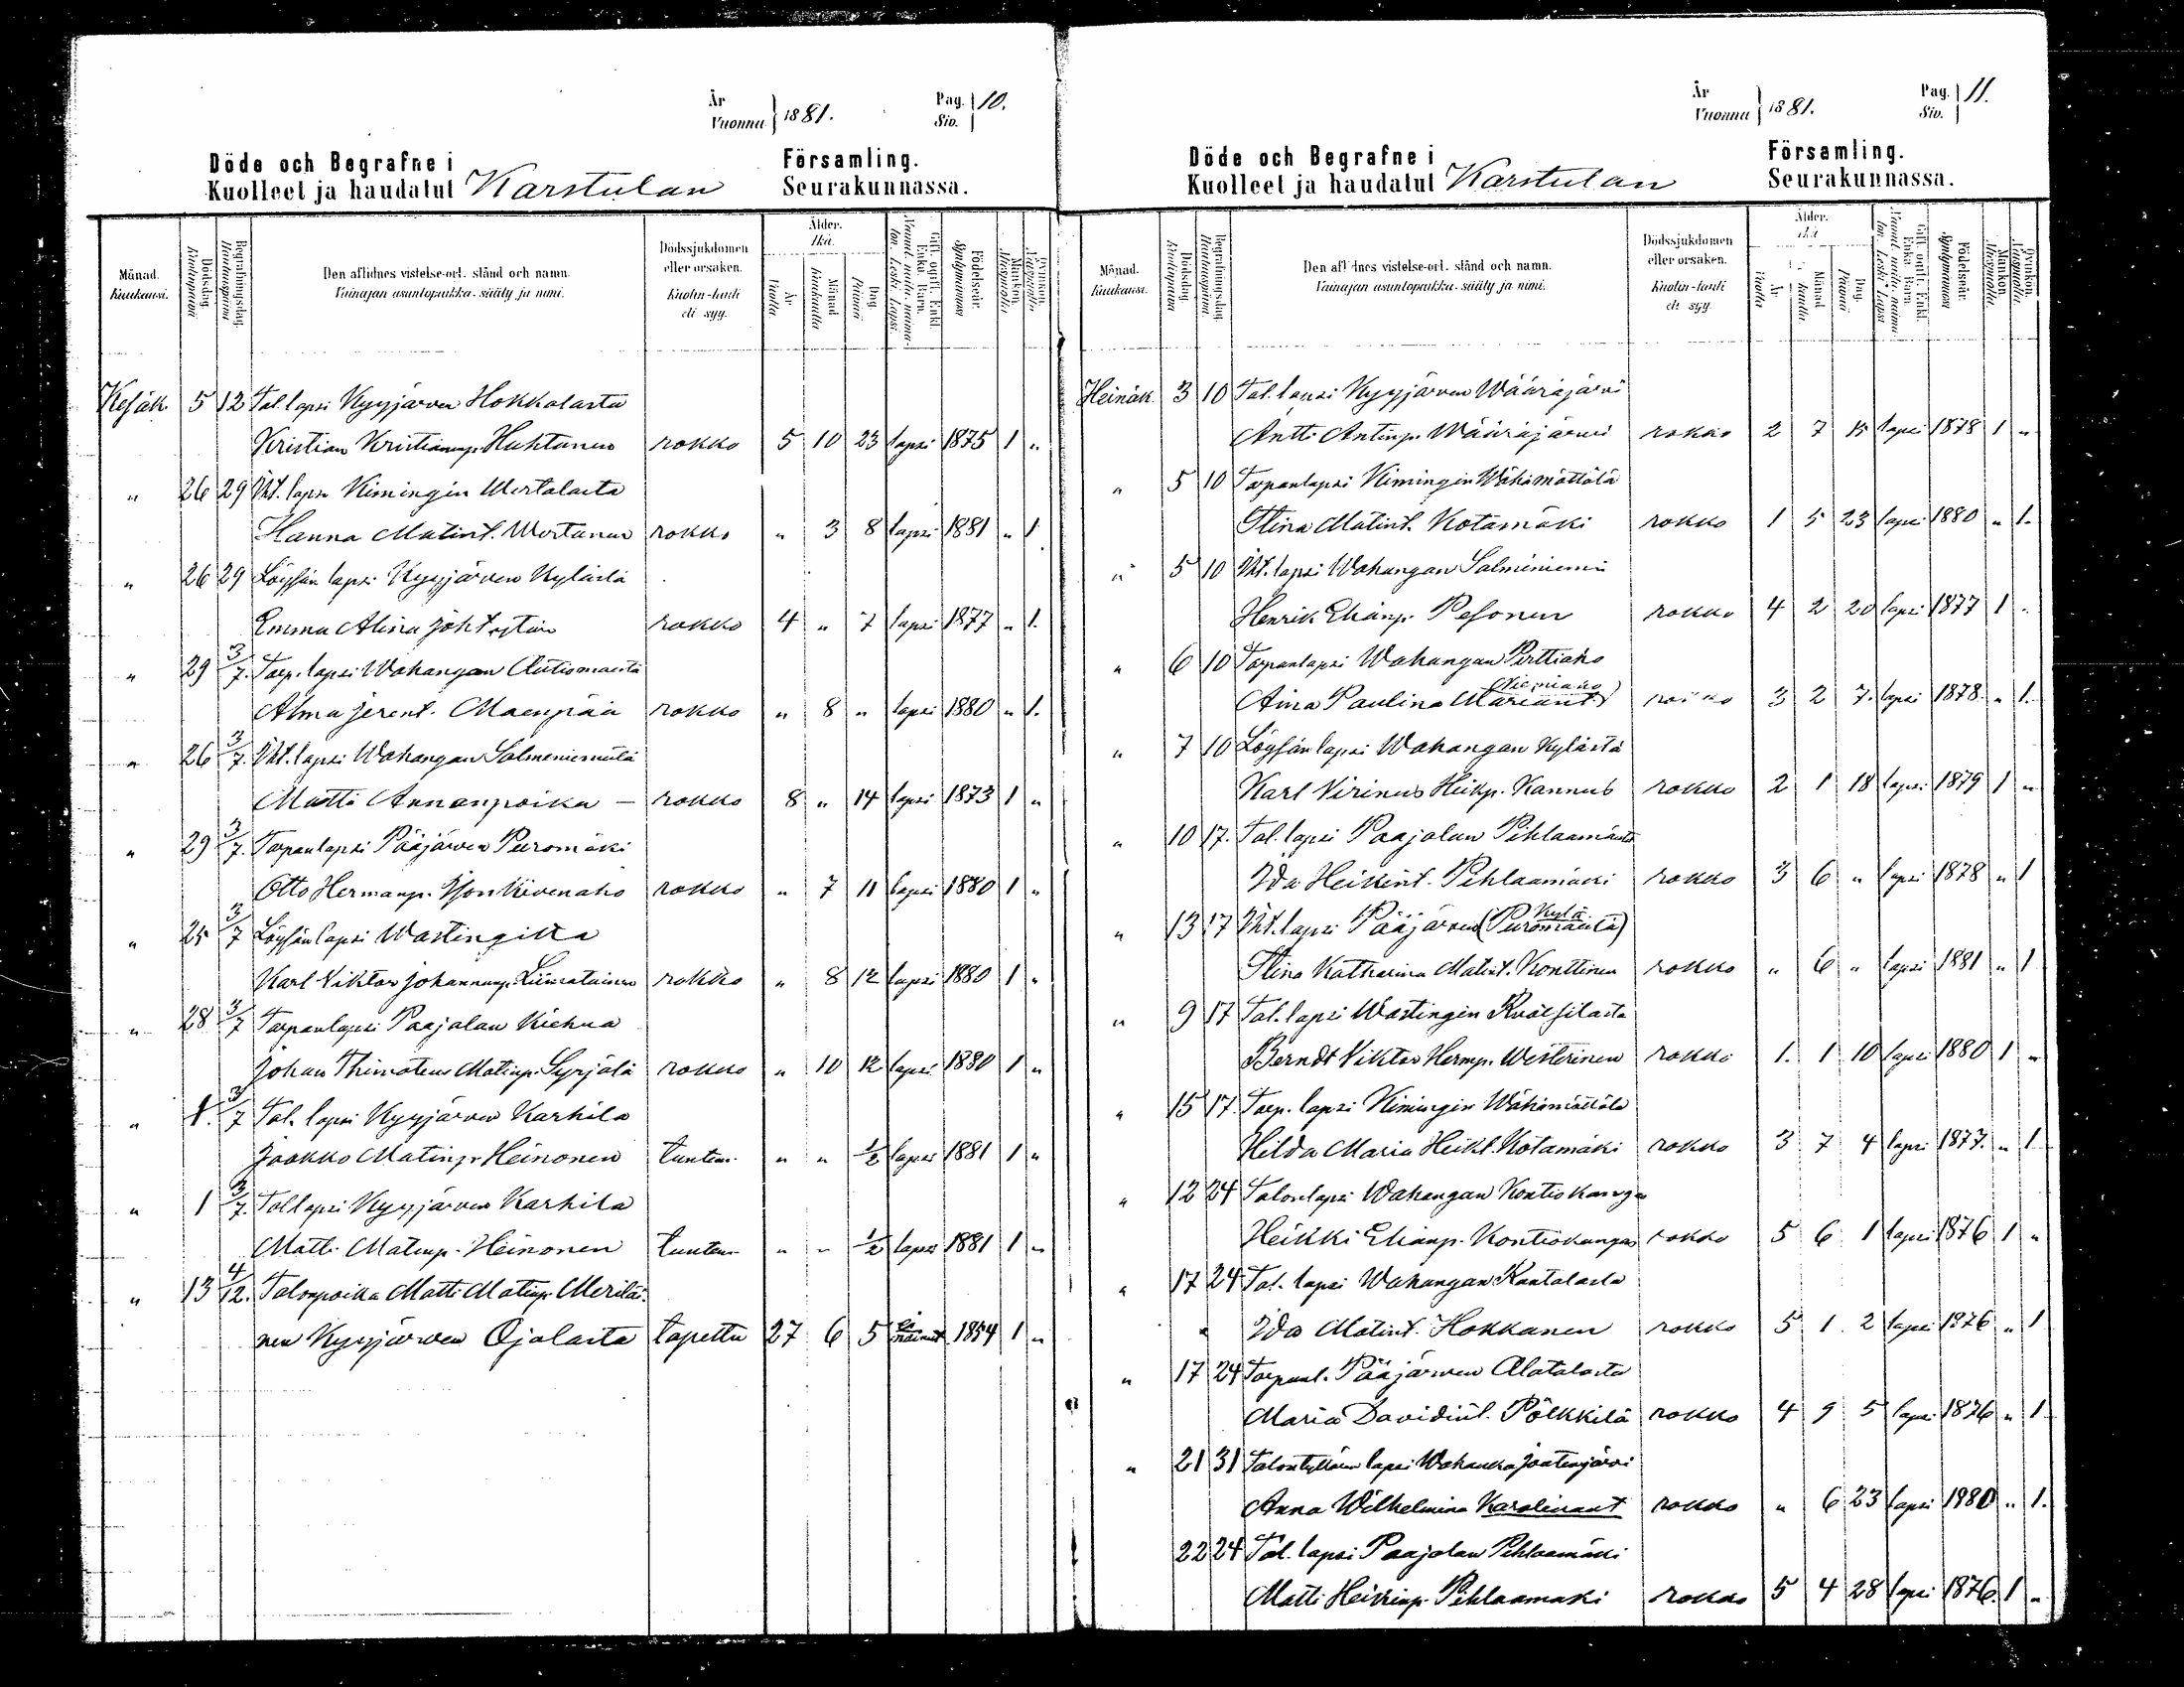 År
Vuonna } 1881.
Pag.
Siv. } 10.
Döde och Begrafne i
Kuolleet ja haudatut Karstulan
Församling.
Seurakunnassa.
Månad. Kuukausi.
Dödsdag. Kuolinpäivä
Begrafningsdag. Hautauspäivä
Den aflidnes vistelse-ort. stånd och namn.
Vainajan asuntopaikka. sääty ja nimi.
Dödssjukdomen eller orsaken.
Kuolin-tauti eli syy.
Ålder. Ikä.
År. Vuotta
Månad. Kuukautta
Dag. Päivää
Gift. ogift. Enkl. Enka. Barn.
Födelseår. Syntymävuosi
Mankön. Miespuolia
Qvinkön. Naispuolia
Kesäk. 5 12 Tal. lapsi Kyyjärven Hokkalasta
Kristian Kristianinp. Huhtanen rokko 5 10 23 lapsi 1875 1 "
" 26 29 Iht. lapsi Kimingin Mertalasta
Hanna Matint. Mertanen rokko " 3 8 lapsi 1881 " 1
" 26 29 Löysän lapsi Kyyjärven Kylästä
Emma Alina Joht rokko 4 " 7 lapsi 1877 " 1.
" 29 3/7. Torp. lapsi Wahangan Autiomaesta
Alma Jerent. Maenpää rokko " 8 " lapsi 1880 " 1.
" 26 3/7. Iht. lapsi Wahangan Salmeniemeltä
Matti Annanpoika – rokko 8 " 14 lapsi 1873 1 "
" 29 3/7. Torpanlapsi Pääjärven Puromäki
Otto Hermanp. Kivenaho rokko " 7 11 lapsi 1880 1 "
" 25 3/7 Löysän lapsi Wastingilta
Karl Viktor Johannanp. Liimatainen rokko " 8 12 lapsi 1880 1 "
" 28 3/7 Torpanlapsi Paajalan Kiehua
Johan Thimoteus Matinp. Syrjälä rokko " 10 12 lapsi 1880 1 "
" 1. 3/7 Tal. lapsi Kyyjärven Karhila
Jaakko Matinp. Heinonen tuntem. " " 1/2 lapsi 1881 1 "
" 1 3/7. Tal lapsi Kyyjärven Karhila
Matti Matinp. Heinonen tuntem. " " 1/2 lapsi 1881 1 "
" 13 4/12. Talonpoika Matti Matinp. Meriläi-
nen Kyyjärven Ojalasta tapettu 27 6 5 ei nainut 1854 1 "
År
Vuonna } 1881.
Pag.
Siv. } 11.
Döde och Begrafne i
Kuolleet ja haudatut Karstulan
Församling.
Seurakunnassa.
Månad. Kuukausi.
Dödsdag. Kuolinpäivä
Begrafningsdag. Hautauspäivä
Den aflidnes vistelse-ort. stånd och namn.
Vainajan asuntopaikka. sääty ja nimi.
Dödssjukdomen eller orsaken.
Kuolin-tauti eli syy.
Ålder. Ikä
År. Vuotta
Månad. kautta
Dag. Päivää
Gift. ogift. Enkl. Enka. Barn.
Födelseår. Syntymävuosi
Mankön. Miespuolia
Qvinkön. Naispuolia
Heinäk. 3 10 Tal. lapsi Kyyjärven Wääräjärvi
Antti Antinp. Wääräjärvi rokko 2 7 15 lapsi 1878 1 "
" 5 10 Torpanlapsi Kimingin Wähämöttölä
Stina Matint. Kotamäki rokko 1 5 23 lapsi 1880 " 1.
" 5 10 Iht. lapsi Wahangan Salmeniemi
Henrik Elianp. Pesonen rokko 4 2 20 lapsi 1877 1 "
" 6 10 Torpanlapsi Wahangan Perttiaho
Aina Paulina Mariant. rokko 3 2 7. lapsi 1878. " 1.
" 7 10 Löysän lapsi Wahangan Kylästä
Karl Virinus Heikp. Kannus rokko 2 1 18 lapsi 1879 1 "
" 10 17. Tal. lapsi Paajalan Pihlaamäestä
Ida Heikint. Pihlaamäki rokko 3 6 " lapsi 1878 " 1
" 13 17 Iht. lapsi Pääjärven (Puromäeltä) Kylä
Stina Katharina Matint. Konttinen rokko " 6 " lapsi 1881 " 1
" 9 17 Tal. lapsi Wastingin
Berndt Viktor Hermp. Westerinen rokko 1. 1 10 lapsi 1880 1 "
" 15 17. Torp. lapsi Kimingin Wähämöttölä
Hilda Maria Heikt. Kotamäki rokko 3 7 4 lapsi 1877. " 1
" 12 24 Talonlapsi Wahangan Kontiokangas
Heikki Elianp. Kontiokangas rokko 5 6 1 lapsi 1876 1 "
" 17 24 Tal. lapsi Wahangan Rantalasta
Ida Matint. Hokkanen rokko 5 1 2 lapsi 1876 " 1
" 17 24 Torpanl. Pääjärven Alatalosta
Maria Davidint. Pölkkilä rokko 4 9 5 lapsi 1876 " 1
" 21 31 Talontyttären lapsi Wahanka Joutenjärvi
Anna Wilhelmina Karolinant rokko " 6 23 lapsi 1980 " 1.
22 24 Tal. lapsi Paajalan Pihlaamäki
Matti Heikinp. Pihlaamaki rokko 5 4 28 lapsi 1876. 1 "